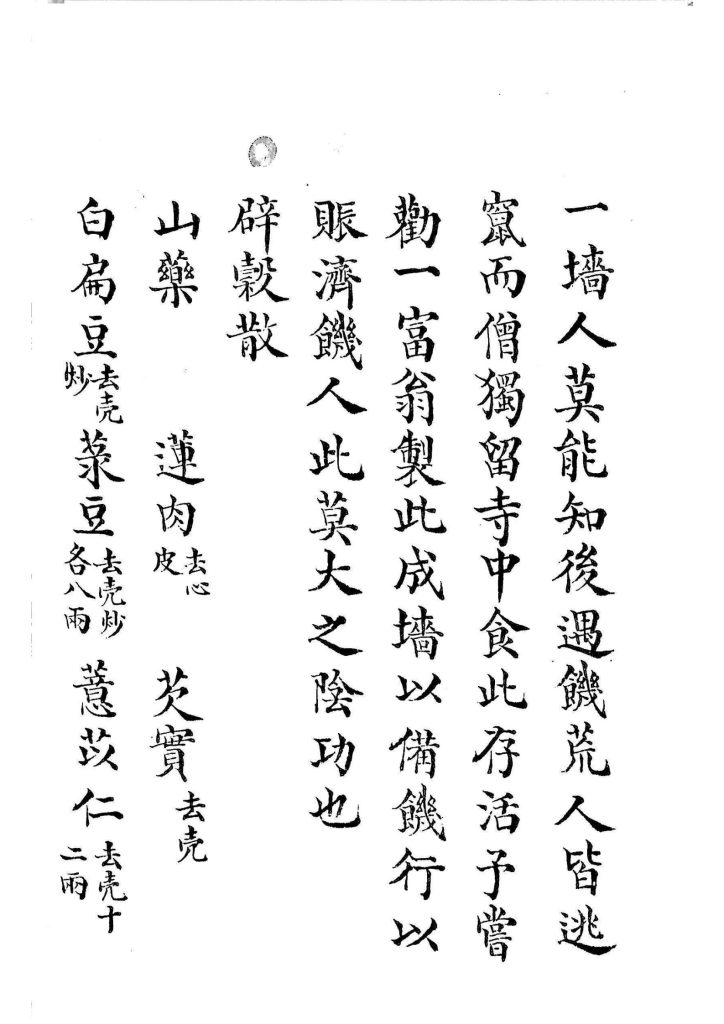 一墻人莫能知後遇饑荒人皆逃
竄而僧獨留寺中食此存活予嘗
勸一富翁製此成墻以備饑行以
賑濟饑人此莫大之陰功也
辟穀散
山藥 蓮肉去心皮 芡實去壳
白扁豆去壳炒 菉豆去壳炒各八兩 薏苡仁去壳十二兩